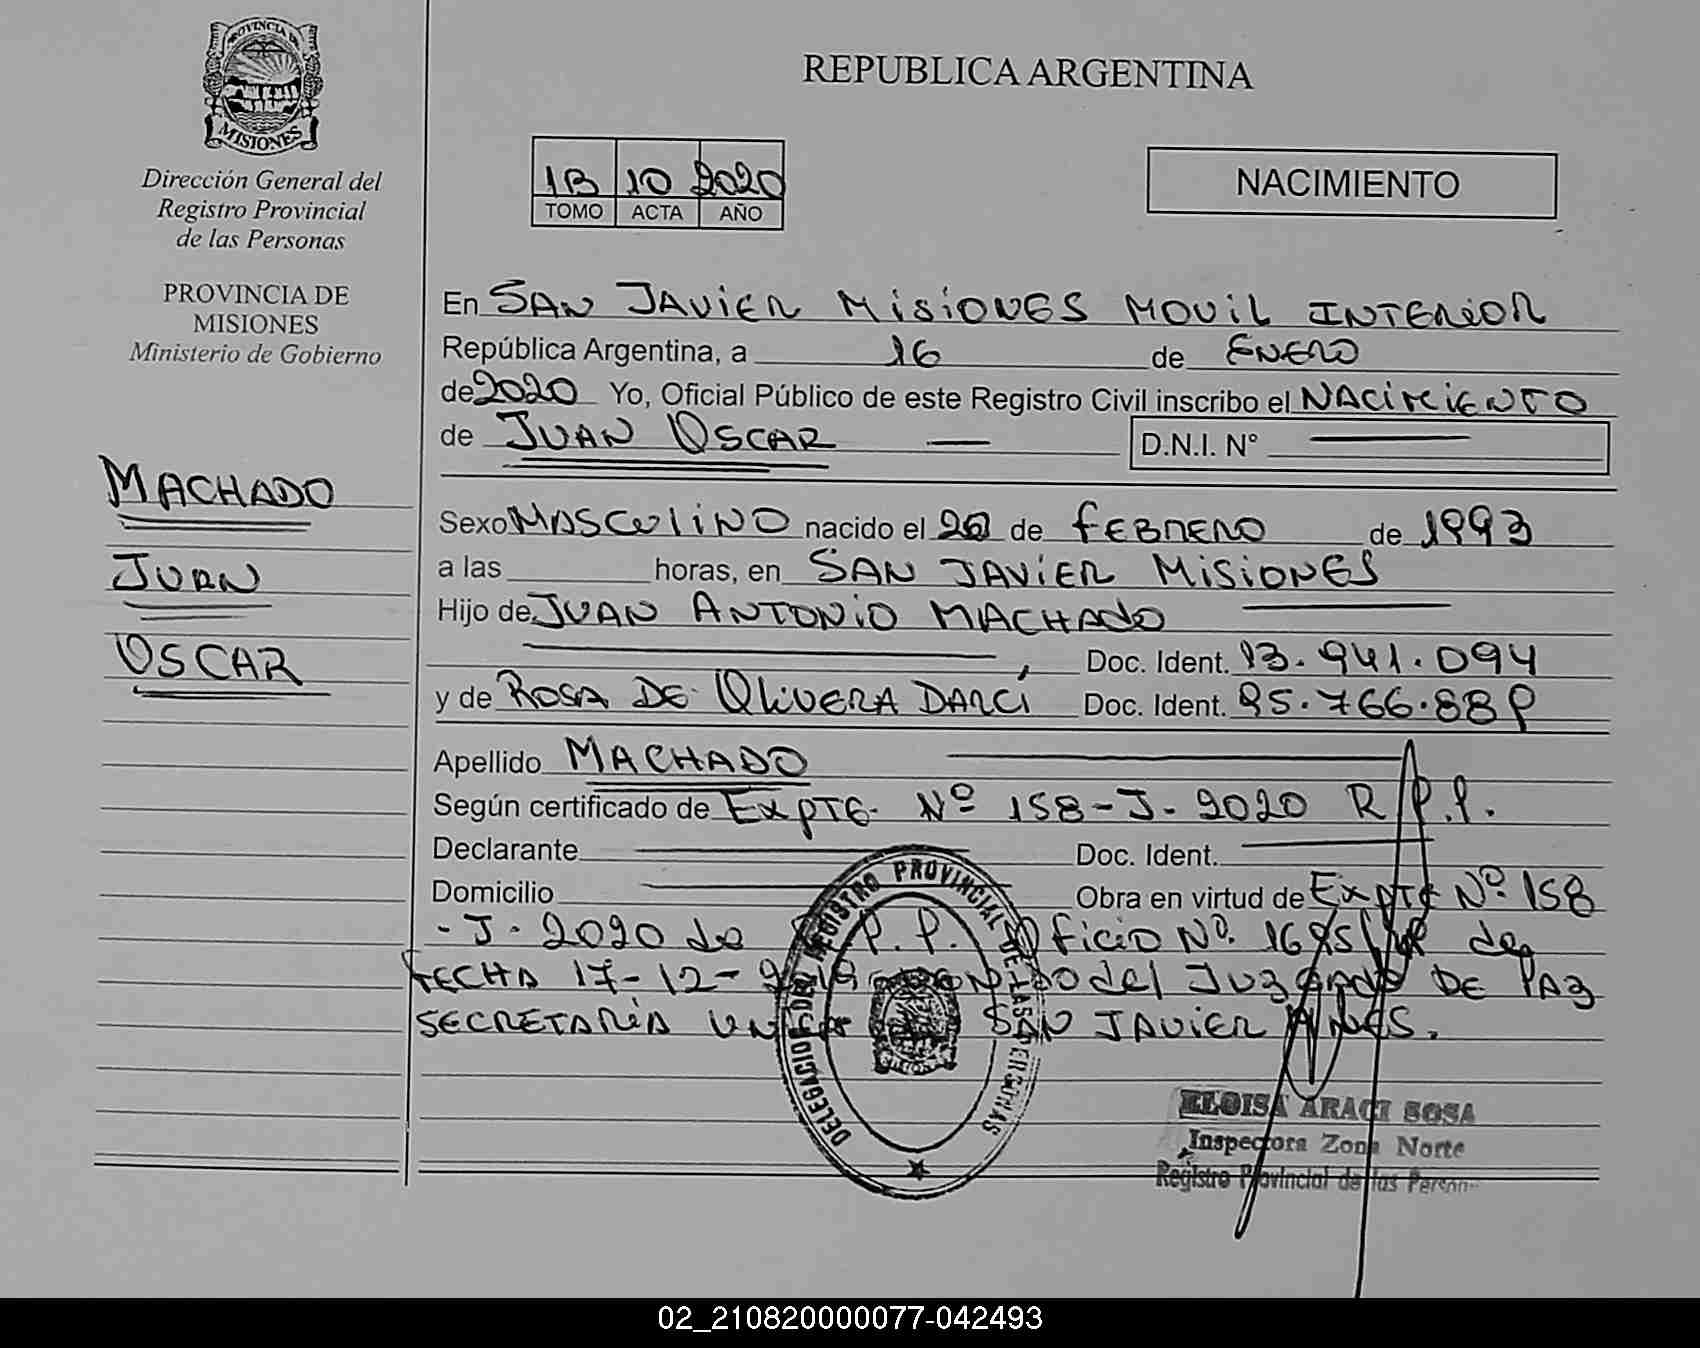 PROVINCIA DE
MISIONES
Dirección General del
Registro Provincial
de las Personas
PROVINCIA DE
MISIONES
Ministerio de Gobierno
MACHADO
JUAN
OSCAR
REPUBLICA ARGENTINA
1B 10 2020
TOMO ACTA AÑO
NACIMIENTO
En SAN JAVIER MISIONES MOVIL INTERIOR
República Argentina, a 16 de ENERO
de 2020 Yo, Oficial Público de este Registro Civil inscribo el NACIMIENTO
de JUAN OSCAR D.N.I. N°
Sexo MASCULINO nacido el de FEBRERO de 1993
a las horas, en SAN JAVIER MISIONES
Hijo de JUAN ANTONIO MACHADO
Doc. Ident. 13.941.094
y de ROSA DE OLIVERA DARCI Doc. Ident.
Apellido MACHADO
Según certificado de EXPTE. Nº 158-J-2020 R.P.P.
Declarante Doc. Ident.
Domicilio Obra en virtud de EXPTE Nº 158
-J-2020 de P.P. Oficio Nº. de
FECHA 17-12- del Juzgado DE PAZ
SECRETARÍA SAN JAVIER MNES.
DELEGACION DEL REGISTRO PROVINCIAL DE LAS PERSONAS
ELOISA ARACI SOSA
Inspectora Zona Norte
Registro Provincial de las Person
02_210820000077-042493